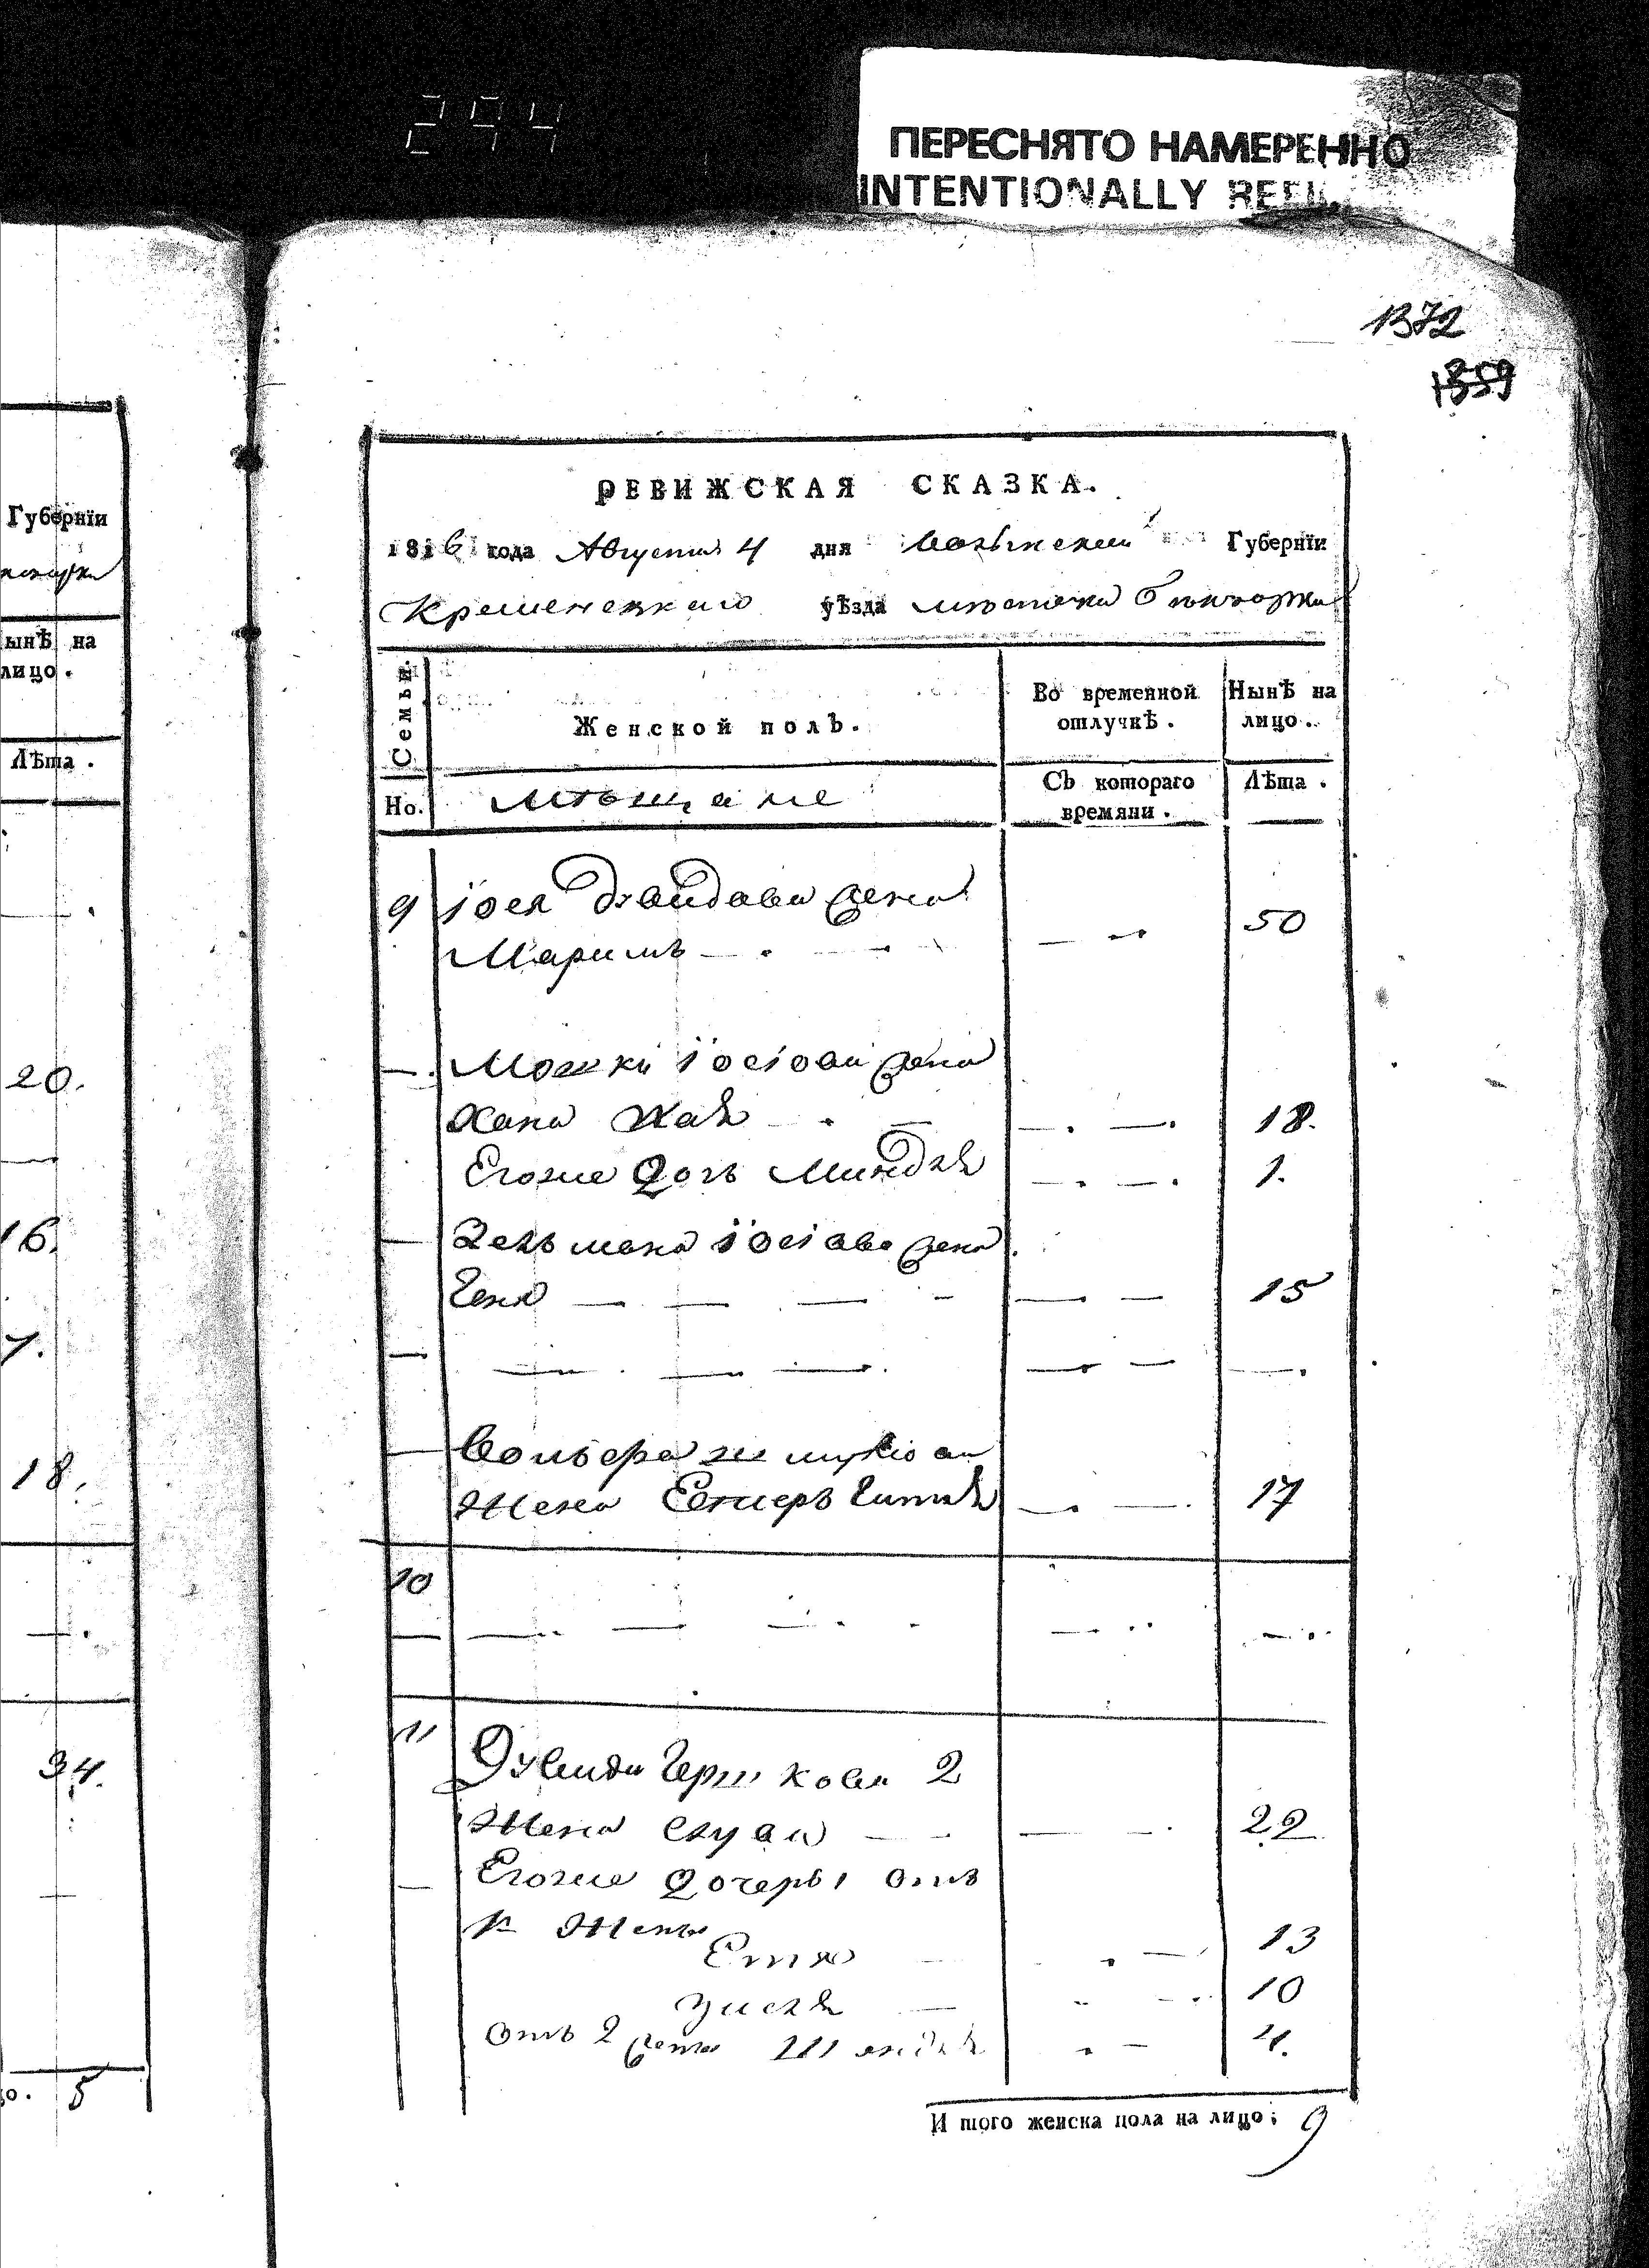 294
ПЕРЕСНЯТО НАМЕРЕННО
INTENTIONALLY
1372
1359
Губернїи
ынѣ на
лицо.
Лѣта.
20.
16.
7.
18.
34.
о. 5
РЕВИЖСКАЯ СКАЗКА.
1816 года Августа 4 дня Волынской Губернїи
Кременецкаго уѣзда местечка
Семьи.
Женской полъ.
Во временной отлучкѣ.
Нынѣ на лицо.
Но.
мѣщане
Съ котораго времяни.
Лѣта.
9 Іося Дувидова жена
Маримъ 50
Мошки Іосіова жена
Хана Хая 18.
Егоже Дочь Миндля 1.
Зельмана Іосіова жена
Геня 15
Вольфа
Жена Естеръ Гитля 17
10
11 Дувида Гершкова 2
Жена Слува 22
Егоже Дочеры отъ
1й Жены
Етя 13
Зисля 10
отъ 2 жены 4.
И того женска пола на лицо: 9